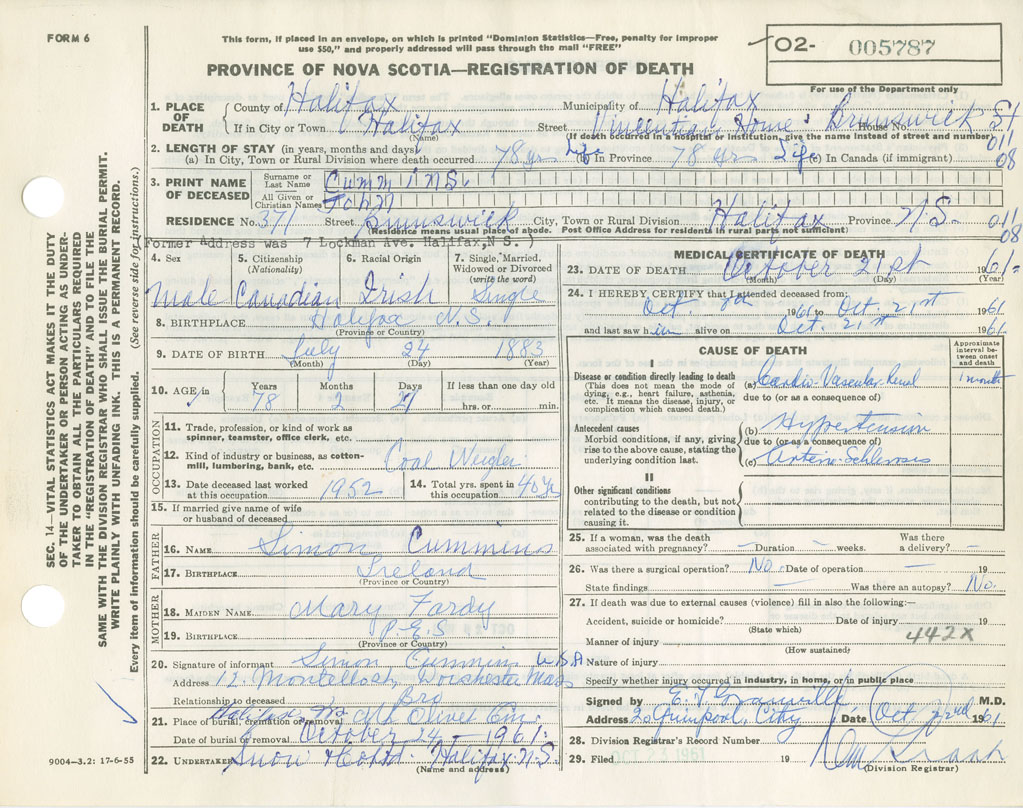 FORM 6
This form, if placed in an envelope, on which is printed "Dominion Statistics—Free, penalty for improper
use $50," and properly addressed will pass through the mail "FREE"
02- 005787
For use of the Department only
PROVINCE OF NOVA SCOTIA—REGISTRATION OF DEATH
1. PLACE OF DEATH
County of Halifax Municipality of Halifax
If in City or Town Halifax Street Vincentian Home: Brunswick St House No.
(Name) (If death occurred in a hospital or institution, give the name instead of street and number)
011
08
2. LENGTH OF STAY (in years, months and days)
(a) In City, Town or Rural Division where death occurred 78 yrs Life (b) In Province 78 yrs Life (c) In Canada (if immigrant)
3. PRINT NAME OF DECEASED
Surname or Last Name Cummins
All Given or Christian Names John
RESIDENCE No. 371 Street Brunswick City, Town or Rural Division Halifax Province N.S. 011
08
(Residence means usual place of abode. Post Office Address for residents in rural parts not sufficient)
(Former Address was 7 Lockman Ave. Halifax,N S. )
4. Sex 5. Citizenship (Nationality) 6. Racial Origin 7. Single, Married, Widowed or Divorced (write the word)
Male Canadian Irish Single
8. BIRTHPLACE Halifax N.S.
(Province or Country)
9. DATE OF BIRTH July 24 1883
(Month) (Day) (Year)
10. AGE in Years Months Days If less than one day old
78 2 27 hrs. or min.
OCCUPATION
11. Trade, profession, or kind of work as
spinner, teamster, office clerk, etc.
12. Kind of industry or business, as cotton-
mill, lumbering, bank, etc. Coal Weigler
13. Date deceased last worked at this occupation 1952 14. Total yrs. spent in this occupation 40 yr
15. If married give name of wife
or husband of deceased
FATHER
16. NAME Simon Cummins
17. BIRTHPLACE Ireland
(Province or Country)
MOTHER
18. MAIDEN NAME Mary Fardy
19. BIRTHPLACE P.E.S
(Province or Country)
20. Signature of informant Simon Cummins USA
Address 12 Dorchester Mass
Relationship to deceased Bro
21. Place of burial, cremation or removal Halifax Mt Olivet Cm.
Date of burial or removal October 24 - 1961.
22. UNDERTAKER Snow & Co Ltd Halifax N.S.
(Name and address)
MEDICAL CERTIFICATE OF DEATH
23. DATE OF DEATH October 21st 1961
(Month) (Day) (Year)
24. I HEREBY CERTIFY that I attended deceased from:
Oct. 1961 to Oct. 21st 1961
and last saw him alive on Oct. 21st 1961
CAUSE OF DEATH
Approximate interval between onset and death
I
Disease or condition directly leading to death
(This does not mean the mode of
dying, e.g., heart failure, asthenia,
etc. It means the disease, injury, or
complication which caused death.)
(a) Cardio-Vascular-Renal 1 month
due to (or as a consequence of)
Antecedent causes
Morbid conditions, if any, giving
rise to the above cause, stating the
underlying condition last.
(b) Hypertension
due to (or as a consequence of)
(c) Arterio-Schlerosis
II
Other significant conditions
contributing to the death, but not
related to the disease or condition
causing it.
25. If a woman, was the death
associated with pregnancy? — Duration — weeks. Was there a delivery? —
26. Was there a surgical operation? No. Date of operation — 19
State findings Was there an autopsy? No.
27. If death was due to external causes (violence) fill in also the following:—
Accident, suicide or homicide? Date of injury 19
(State which)
442X
Manner of injury
(How sustained)
Nature of injury
Specify whether injury occurred in industry, in home, or in public place
Signed by E. F. Granville M.D.
Address 20 Quinpool, City Date Oct 22nd 1961
28. Division Registrar's Record Number
29. Filed OCT 23 1961 19
(Division Registrar)
SEC. 14—VITAL STATISTICS ACT MAKES IT THE DUTY
OF THE UNDERTAKER OR PERSON ACTING AS UNDER-
TAKER TO OBTAIN ALL THE PARTICULARS REQUIRED
IN THE "REGISTRATION OF DEATH" AND TO FILE THE
SAME WITH THE DIVISION REGISTRAR WHO SHALL ISSUE THE BURIAL PERMIT.
WRITE PLAINLY WITH UNFADING INK. THIS IS A PERMANENT RECORD.
Every item of information should be carefully supplied. (See reverse side for instructions.)
9004—3.2: 17-6-55